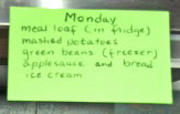 Monday
meat loaf (in fridge)
mashed potatoes
green beans (freezer)
applesauce and bread
ice cream